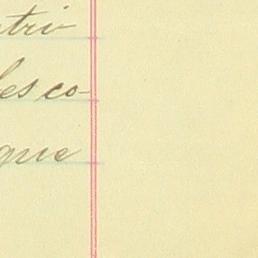 tri
les co-
que